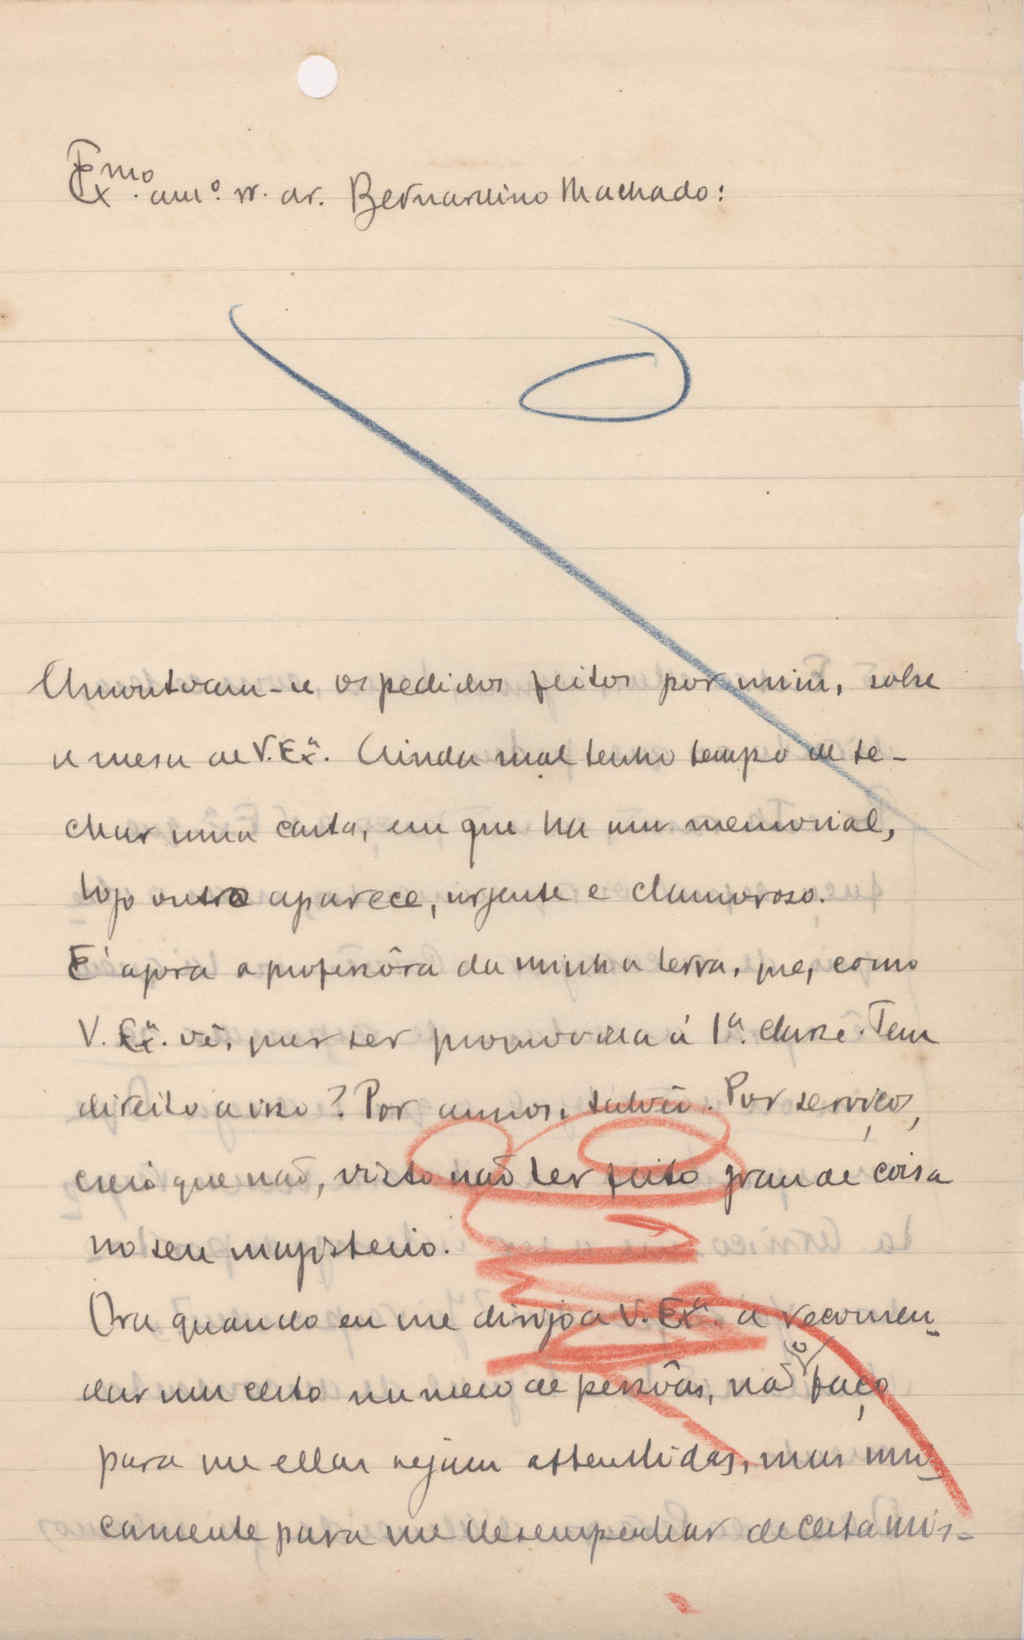 Exmo. amº. sr. dr. Bernardino Machado:
Amontoam-se os pedidos feitos por mim, sobre
a mesa de V. Exª. Ainda mal tenho tempo de fe-
char uma carta, em que ha um memorial,
logo outro aparece, urgente e clamoroso.
E' agora a professôra da minha terra, que, como
V. Exª. vê, quer ser promovida á 1ª. classe. Tem
direito a isso? Por annos, talvez. Por serviços,
creio que não, visto não ter feito grande coisa
no seu magisterio.
Ora quando eu me dirijo a V. Exª. a recomen-
dar um certo numero de pessôas, não o faço
para que ellas sejam attendidas, mas uni-
camente para me desempenhar de certa mis-